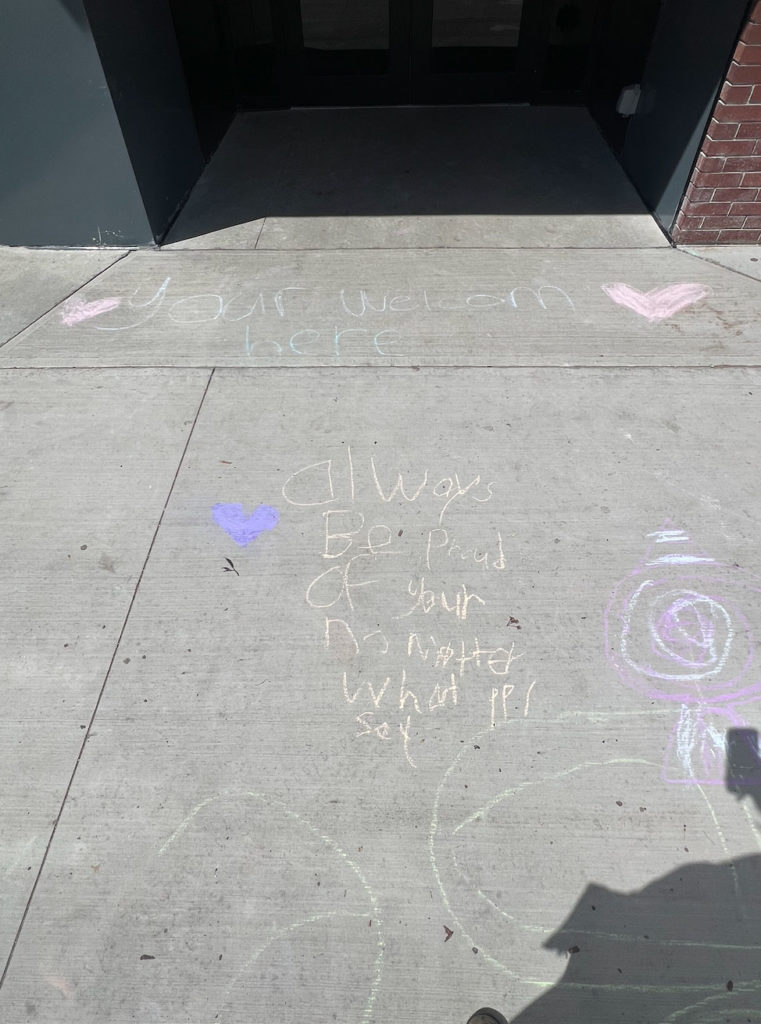 Your welcom
here
always
Be Proud
OF your
no matter
What ppl
say